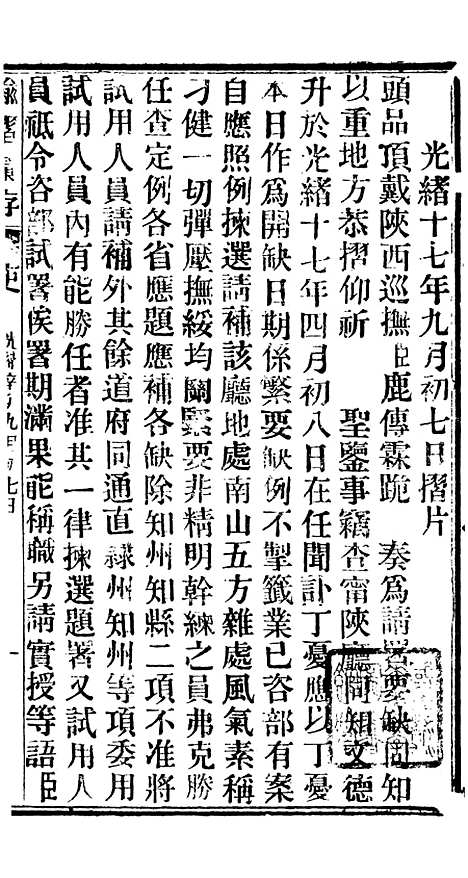 光緒十七年九月初七日摺片
頭品頂戴陝西巡撫臣鹿傳霖跪　奏爲請署要缺同知
以重地方恭摺仰祈　聖鑒事竊查甯陝廳同知文德
升於光緒十七年四月初八日在任聞訃丁憂應以丁憂
本日作爲開缺日期係繁要缺例不掣籤業已咨部有案
自應照例揀選請補該廳地處南山五方雜處風氣素稱
刁健一切彈壓撫綏均關緊要非精明幹練之員弗克勝
任查定例各省應題應補各缺除知州知縣二項不准將
試用人員請補外其餘道府同通直隸州知州等項委用
試用人員內有能勝任者准其一律揀選題署又試用人
員祗令咨部試署俟署期滿果能稱職另請實授等語臣
諭摺彙存
光緒辛卯九月初七日
一